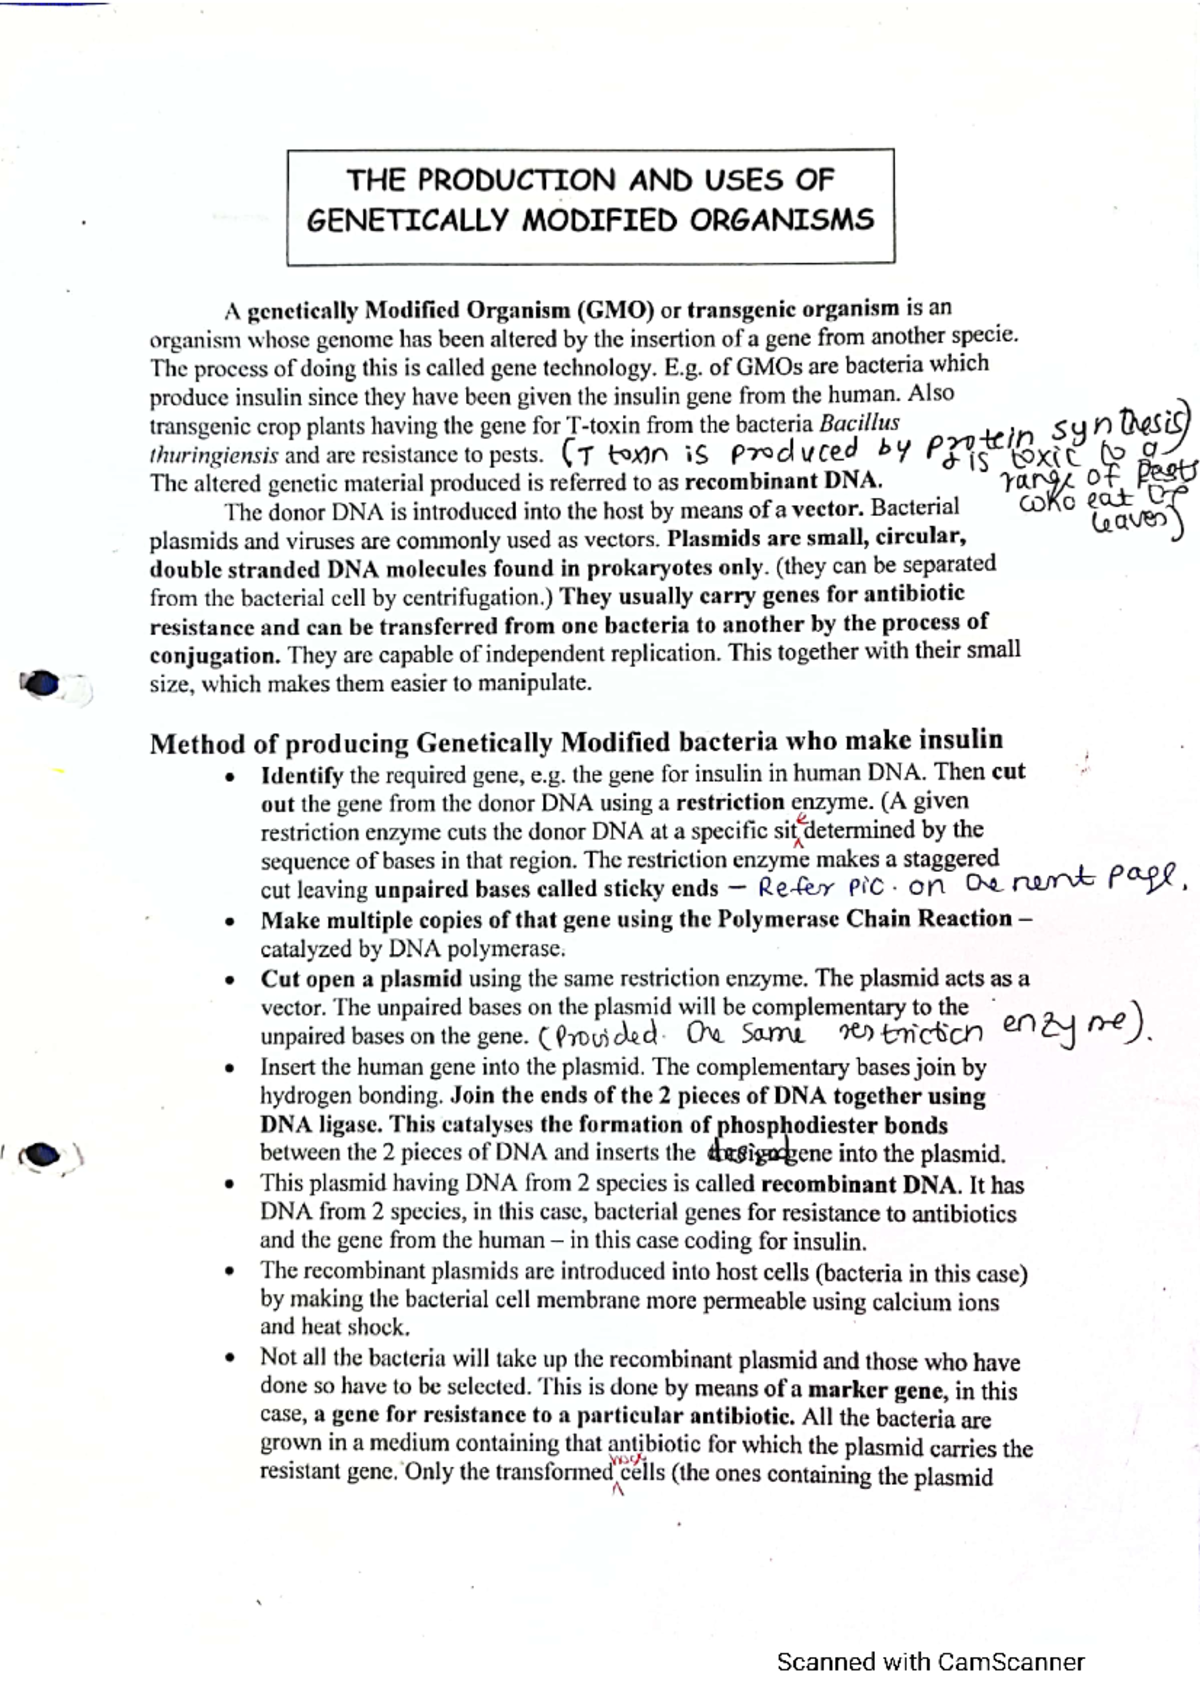 THE PRODUCTION AND USES OF
GENETICALLY MODIFIED ORGANISMS
A genetically Modified Organism (GMO) or transgenic organism is an
organism whose genome has been altered by the insertion of a gene from another specie.
The process of doing this is called gene technology. E.g. of GMOs are bacteria which
produce insulin since they have been given the insulin gene from the human. Also
transgenic crop plants having the gene for T-toxin from the bacteria Bacillus
thuringiensis and are resistance to pests. (T toxin is produced by protein synthesis)
& is toxic to a
range of pests
who eat
leaves)
The altered genetic material produced is referred to as recombinant DNA.
The donor DNA is introduced into the host by means of a vector. Bacterial
plasmids and viruses are commonly used as vectors. Plasmids are small, circular,
double stranded DNA molecules found in prokaryotes only. (they can be separated
from the bacterial cell by centrifugation.) They usually carry genes for antibiotic
resistance and can be transferred from one bacteria to another by the process of
conjugation. They are capable of independent replication. This together with their small
size, which makes them easier to manipulate.
Method of producing Genetically Modified bacteria who make insulin
• Identify the required gene, e.g. the gene for insulin in human DNA. Then cut
out the gene from the donor DNA using a restriction enzyme. (A given
restriction enzyme cuts the donor DNA at a specific site determined by the
sequence of bases in that region. The restriction enzyme makes a staggered
cut leaving unpaired bases called sticky ends – Refer pic. on the next page.
• Make multiple copies of that gene using the Polymerase Chain Reaction –
catalyzed by DNA polymerase.
• Cut open a plasmid using the same restriction enzyme. The plasmid acts as a
vector. The unpaired bases on the plasmid will be complementary to the
unpaired bases on the gene. (Provided the same restriction enzyme).
• Insert the human gene into the plasmid. The complementary bases join by
hydrogen bonding. Join the ends of the 2 pieces of DNA together using
DNA ligase. This catalyses the formation of phosphodiester bonds
between the 2 pieces of DNA and inserts the gene into the plasmid.
• This plasmid having DNA from 2 species is called recombinant DNA. It has
DNA from 2 species, in this case, bacterial genes for resistance to antibiotics
and the gene from the human – in this case coding for insulin.
• The recombinant plasmids are introduced into host cells (bacteria in this case)
by making the bacterial cell membrane more permeable using calcium ions
and heat shock.
• Not all the bacteria will take up the recombinant plasmid and those who have
done so have to be selected. This is done by means of a marker gene, in this
case, a gene for resistance to a particular antibiotic. All the bacteria are
grown in a medium containing that antibiotic for which the plasmid carries the
resistant gene. Only the transformed cells (the ones containing the plasmid
Scanned with CamScanner